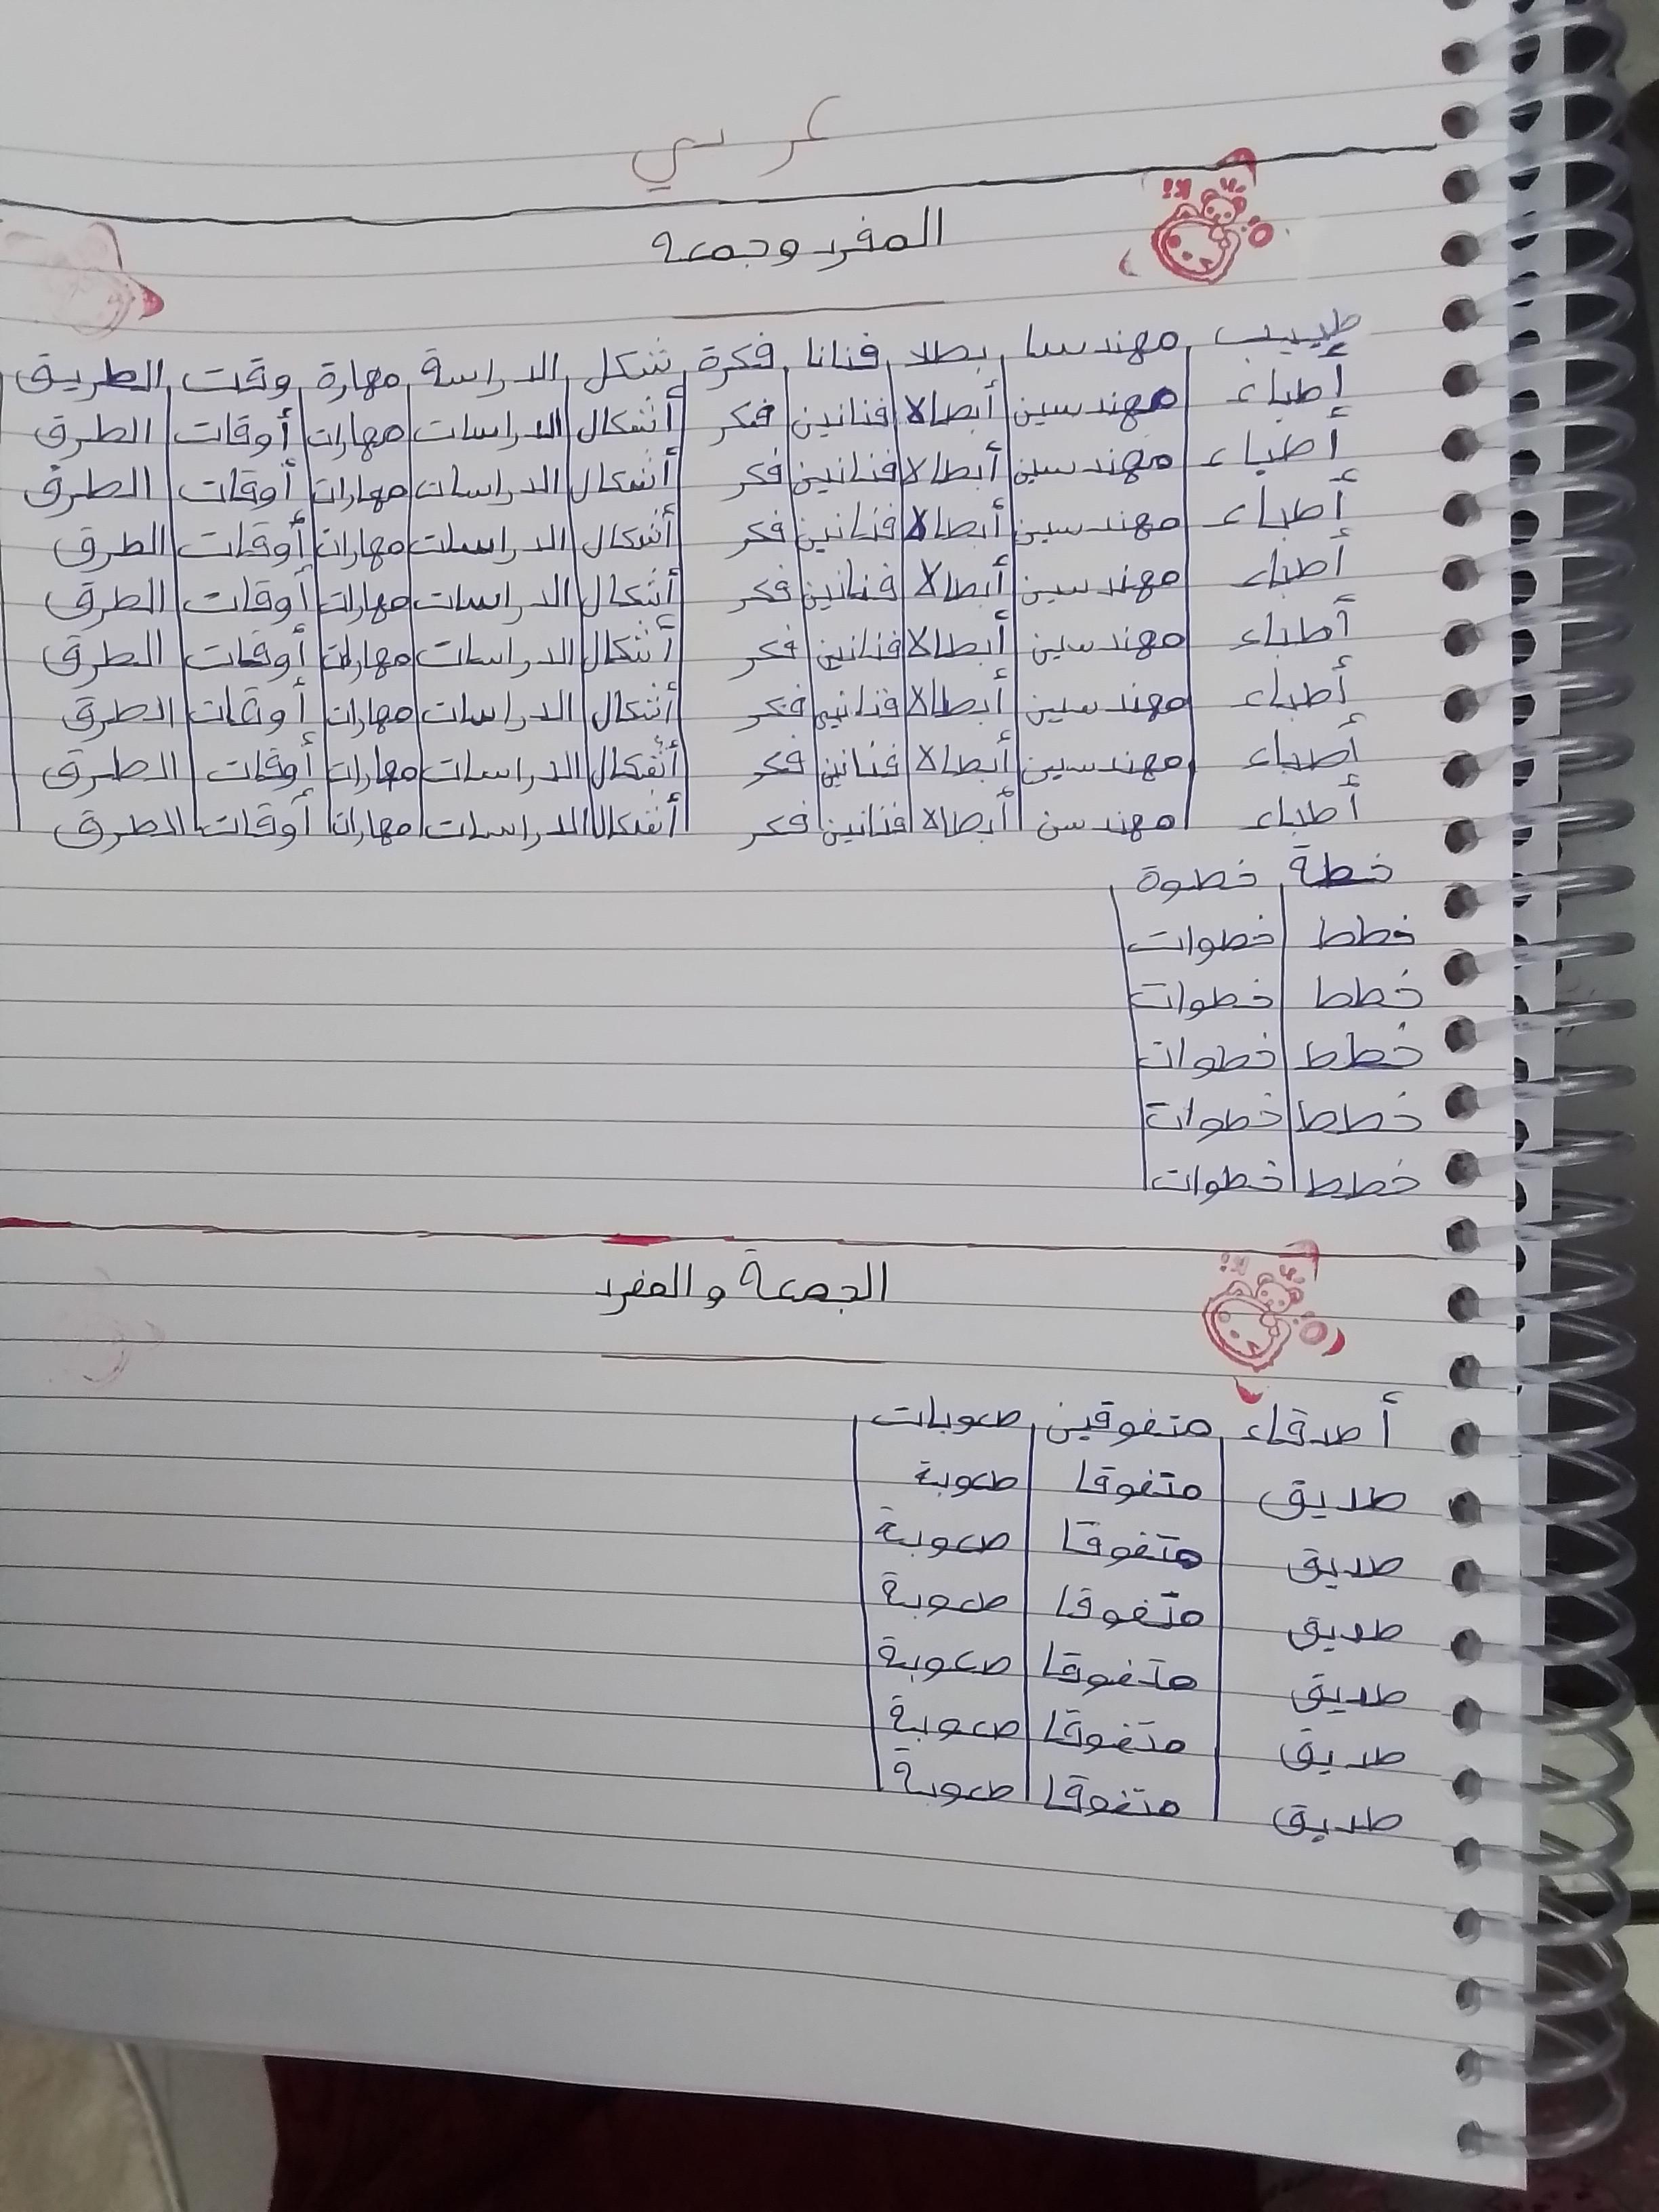 عربي
المفرد وجمعه
طبيب مهندسا بطلا فنانا فكرة شكل الدراسة مهارة وقت الطريق
أطباء مهندسين أبطالا فنانين فكر أشكال الدراسات مهارات أوقات الطرق
أطباء مهندسين أبطالا فنانين فكر أشكال الدراسات مهارات أوقات الطرق
أطباء مهندسين أبطالا فنانين فكر أشكال الدراسات مهارات أوقات الطرق
أطباء مهندسين أبطالا فنانين فكر أشكال الدراسات مهارات أوقات الطرق
أطباء مهندسين أبطالا فنانين فكر أشكال الدراسات مهارات أوقات الطرق
أطباء مهندسين أبطالا فنانين فكر أشكال الدراسات مهارات أوقات الطرق
أطباء مهندسين أبطالا فنانين فكر أشكال الدراسات مهارات أوقات الطرق
أطباء مهندسن أبطالا فنانين فكر أشكال الدراسات مهارات أوقات الطرق
خطة خطوة
خطط خطوات
خطط خطوات
خطط خطوات
خطط خطوات
خطط خطوات
الجمعة والمفرد
أصدقاء متفوقين صعوبات
صديق متفوقا صعوبة
صديق متفوقا صعوبة
صديق متفوقا صعوبة
صديق متفوقا صعوبة
صديق متفوقا صعوبة
صديق متفوقا صعوبة